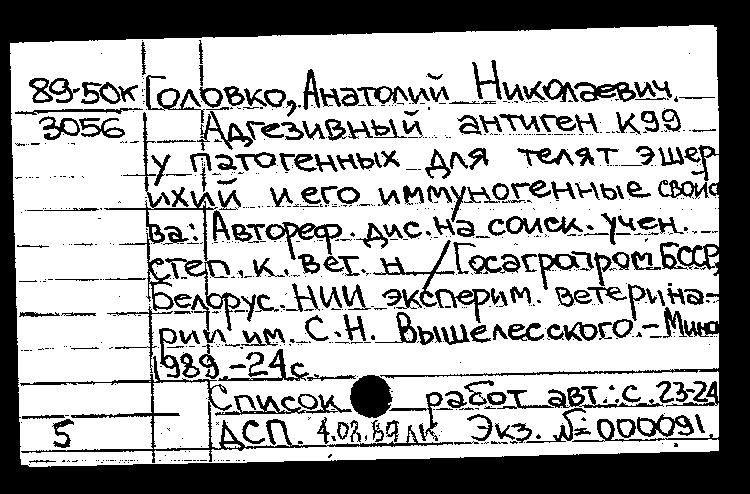 89-50к Головко, Анатолий Николаевич.
3056 Адгезивный антиген К99
у патогенных для телят эшер
ихий и его иммуногенные свойс
ва: Автореф. дис. на соиск. учен.
степ. к. вет. н / Госагропром БССР,
Белорус. НИИ эксперим. ветерина-
рии им. С.Н. Вышелесского. – Минс
1989. – 24с.
Список работ авт.: с. 23-24
5 ДСП. 4.08.89 лк Экз. №=000091.